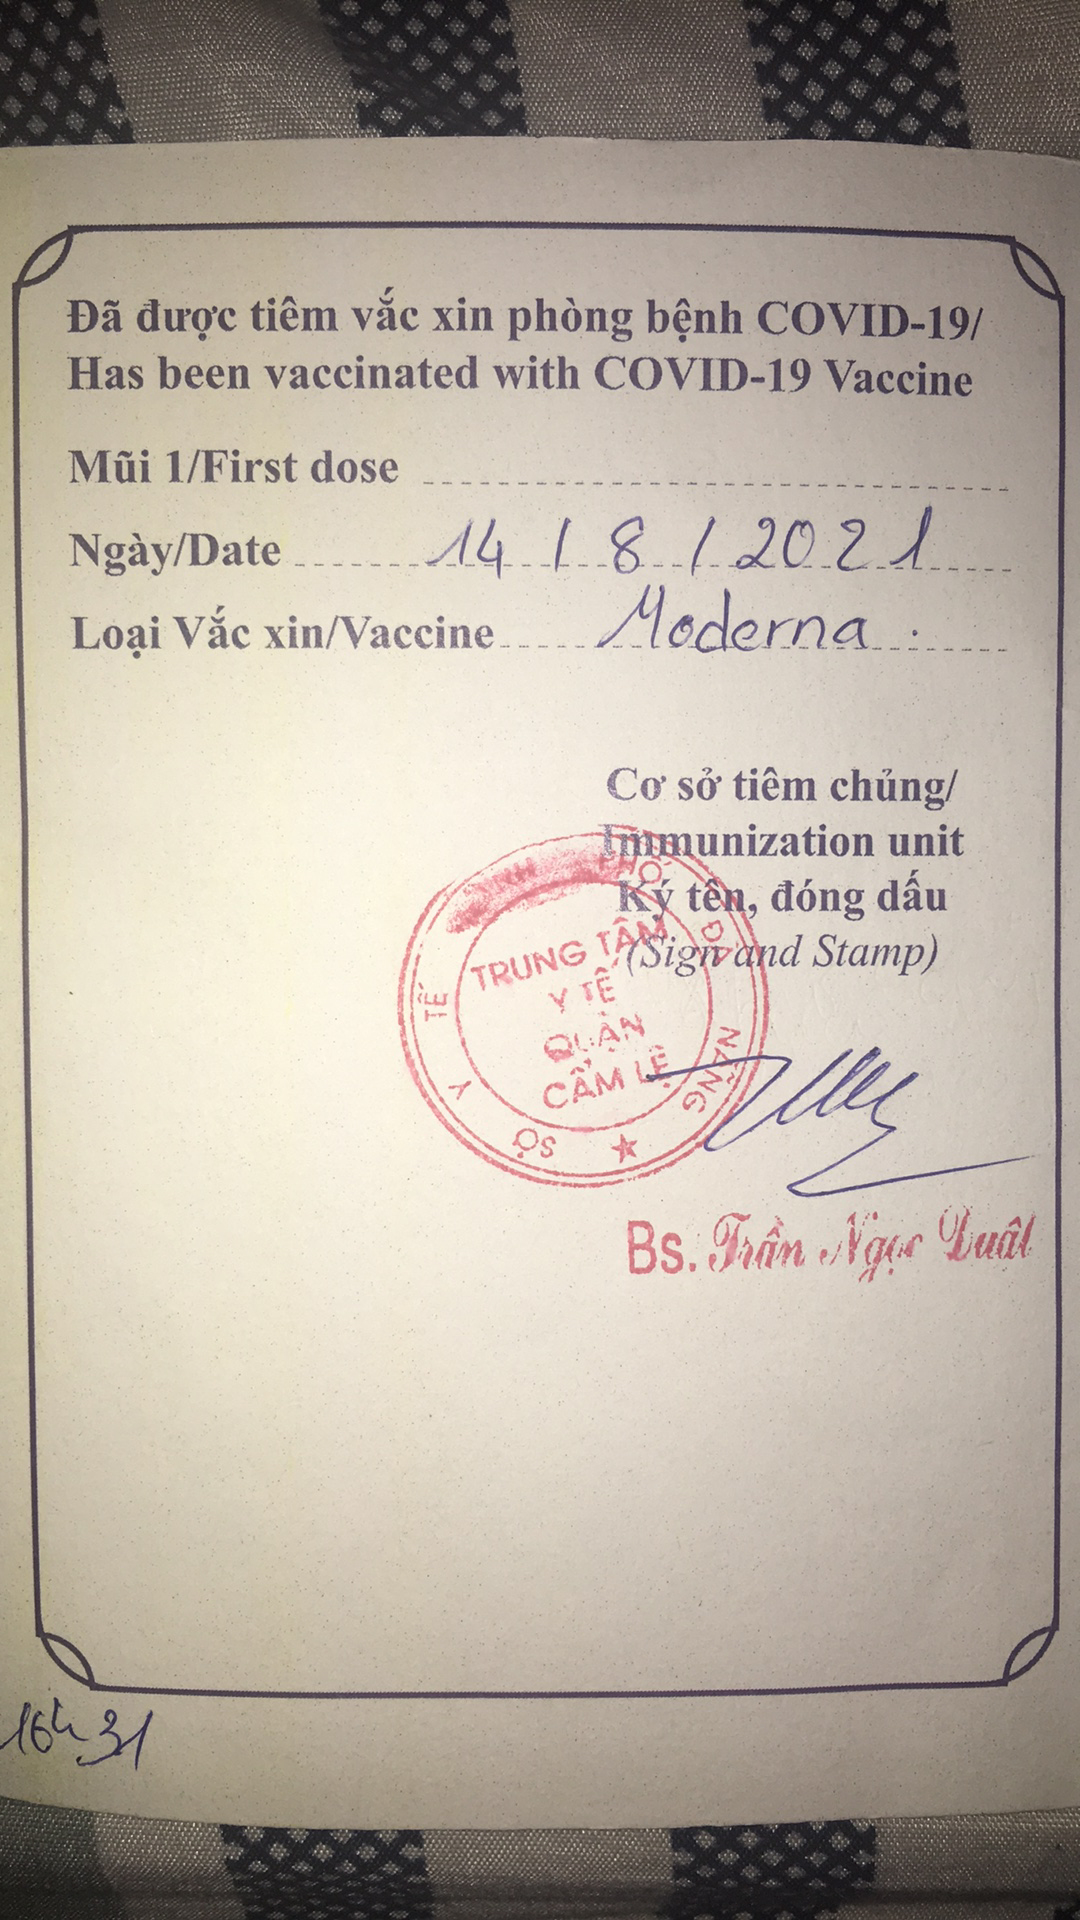 Đã được tiêm vắc xin phòng bệnh COVID-19/
Has been vaccinated with COVID-19 Vaccine
Mũi 1/First dose
Ngày/Date 14 / 8 / 2021
Loại Vắc xin/Vaccine Moderna.
Cơ sở tiêm chủng/
Immunization unit
Ký tên, đóng dấu
(Sign and Stamp)
SỞ Y TẾ PHỐ ĐÀ NẴNG
TRUNG TÂM
Y TẾ
QUẬN
CẨM LỆ
Bs. Trần Ngọc
16h31